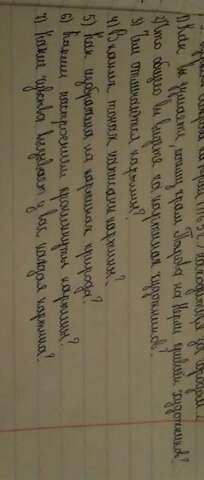 1) Как вы думаете, почему храм Покрова на Нерли привлёк художников?
2) Что общего вы видите на картинах художников?
3) Чем отличаются картины?
4) В каких тонах написаны картины?
5) Как изображена на картинах природа?
6) Каким настроением проникнуты картины?
7) Какие чувства вызывает у вас каждая картина?